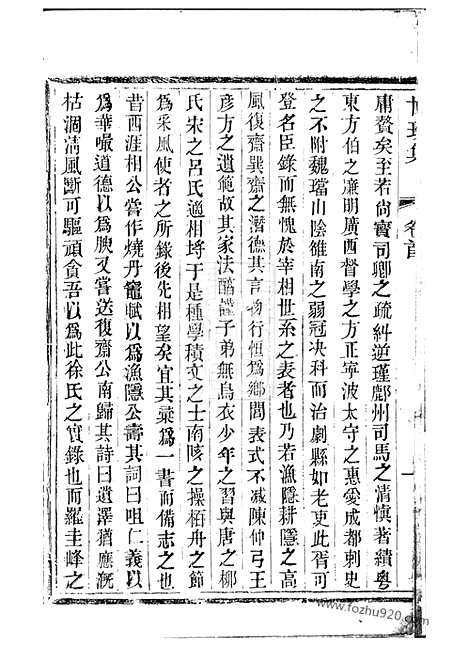 庸贅矣至若尚寳司卿之疏糾逆瑾鄜州司馬之清愼著續粤
東方伯之廉明廣西督學之方正寧波太守之惠愛成都刺史
之不附魏璫山陰雒南之弱冠决科而治劇縣如老吏此胥可
登名臣錄而無愧於宰相世系之表者也乃若漁隱耕隱之高
風復齋巽齋之潛德其言物行恒爲鄉閭表式不减陳仲弓王
彦方之遺範故其家法醕謹子弟無烏衣少年之習與唐之柳
氏宋之呂氏適相埒于是種學積文之士南陔之操栢舟之節
爲采風使者之所錄後先相望矣宜其彙爲一書而備志之也
昔西涯相公嘗作燒丹竈賦以爲漁隱公壽其詞曰咀仁義以
爲華嚼道德以爲腴又嘗送復齋公南歸其詩曰遺澤猶應溉
枯涸清風斷可驅頑貪吾以爲此徐氏之實錄也而羅圭峰之
卷首
一
www.fozhu920.com